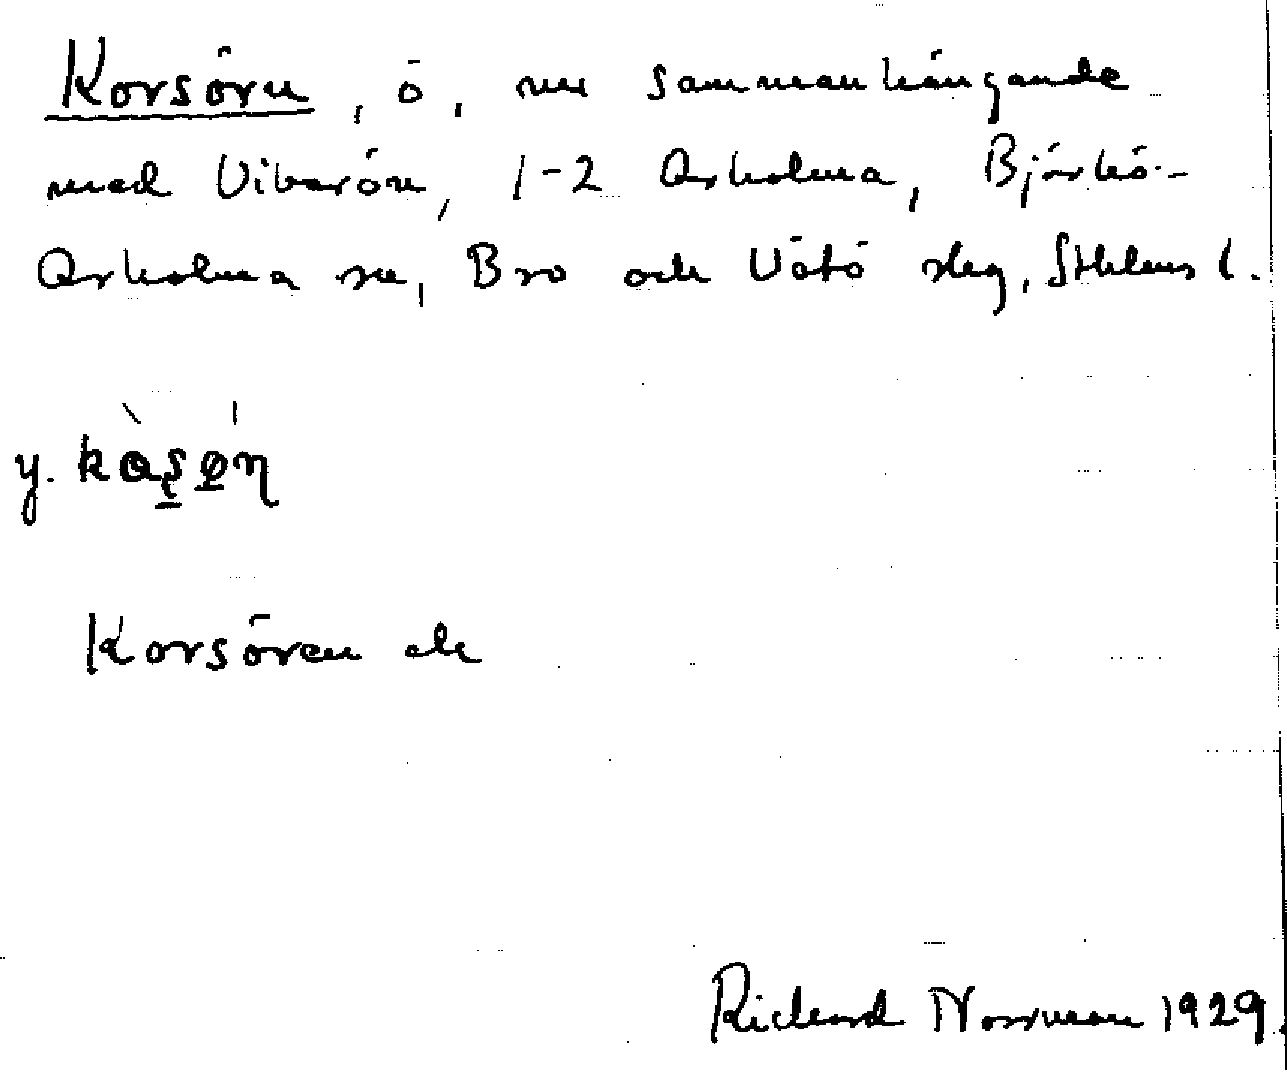 Korsörn, ö, nu sammanhängande
med Viberön, 1-2 Arholma, Björkö-
Arholma sn, Bro och Vätö skg, Sthlms l.
y.
Korsören ek
Richard Norrman 1929.